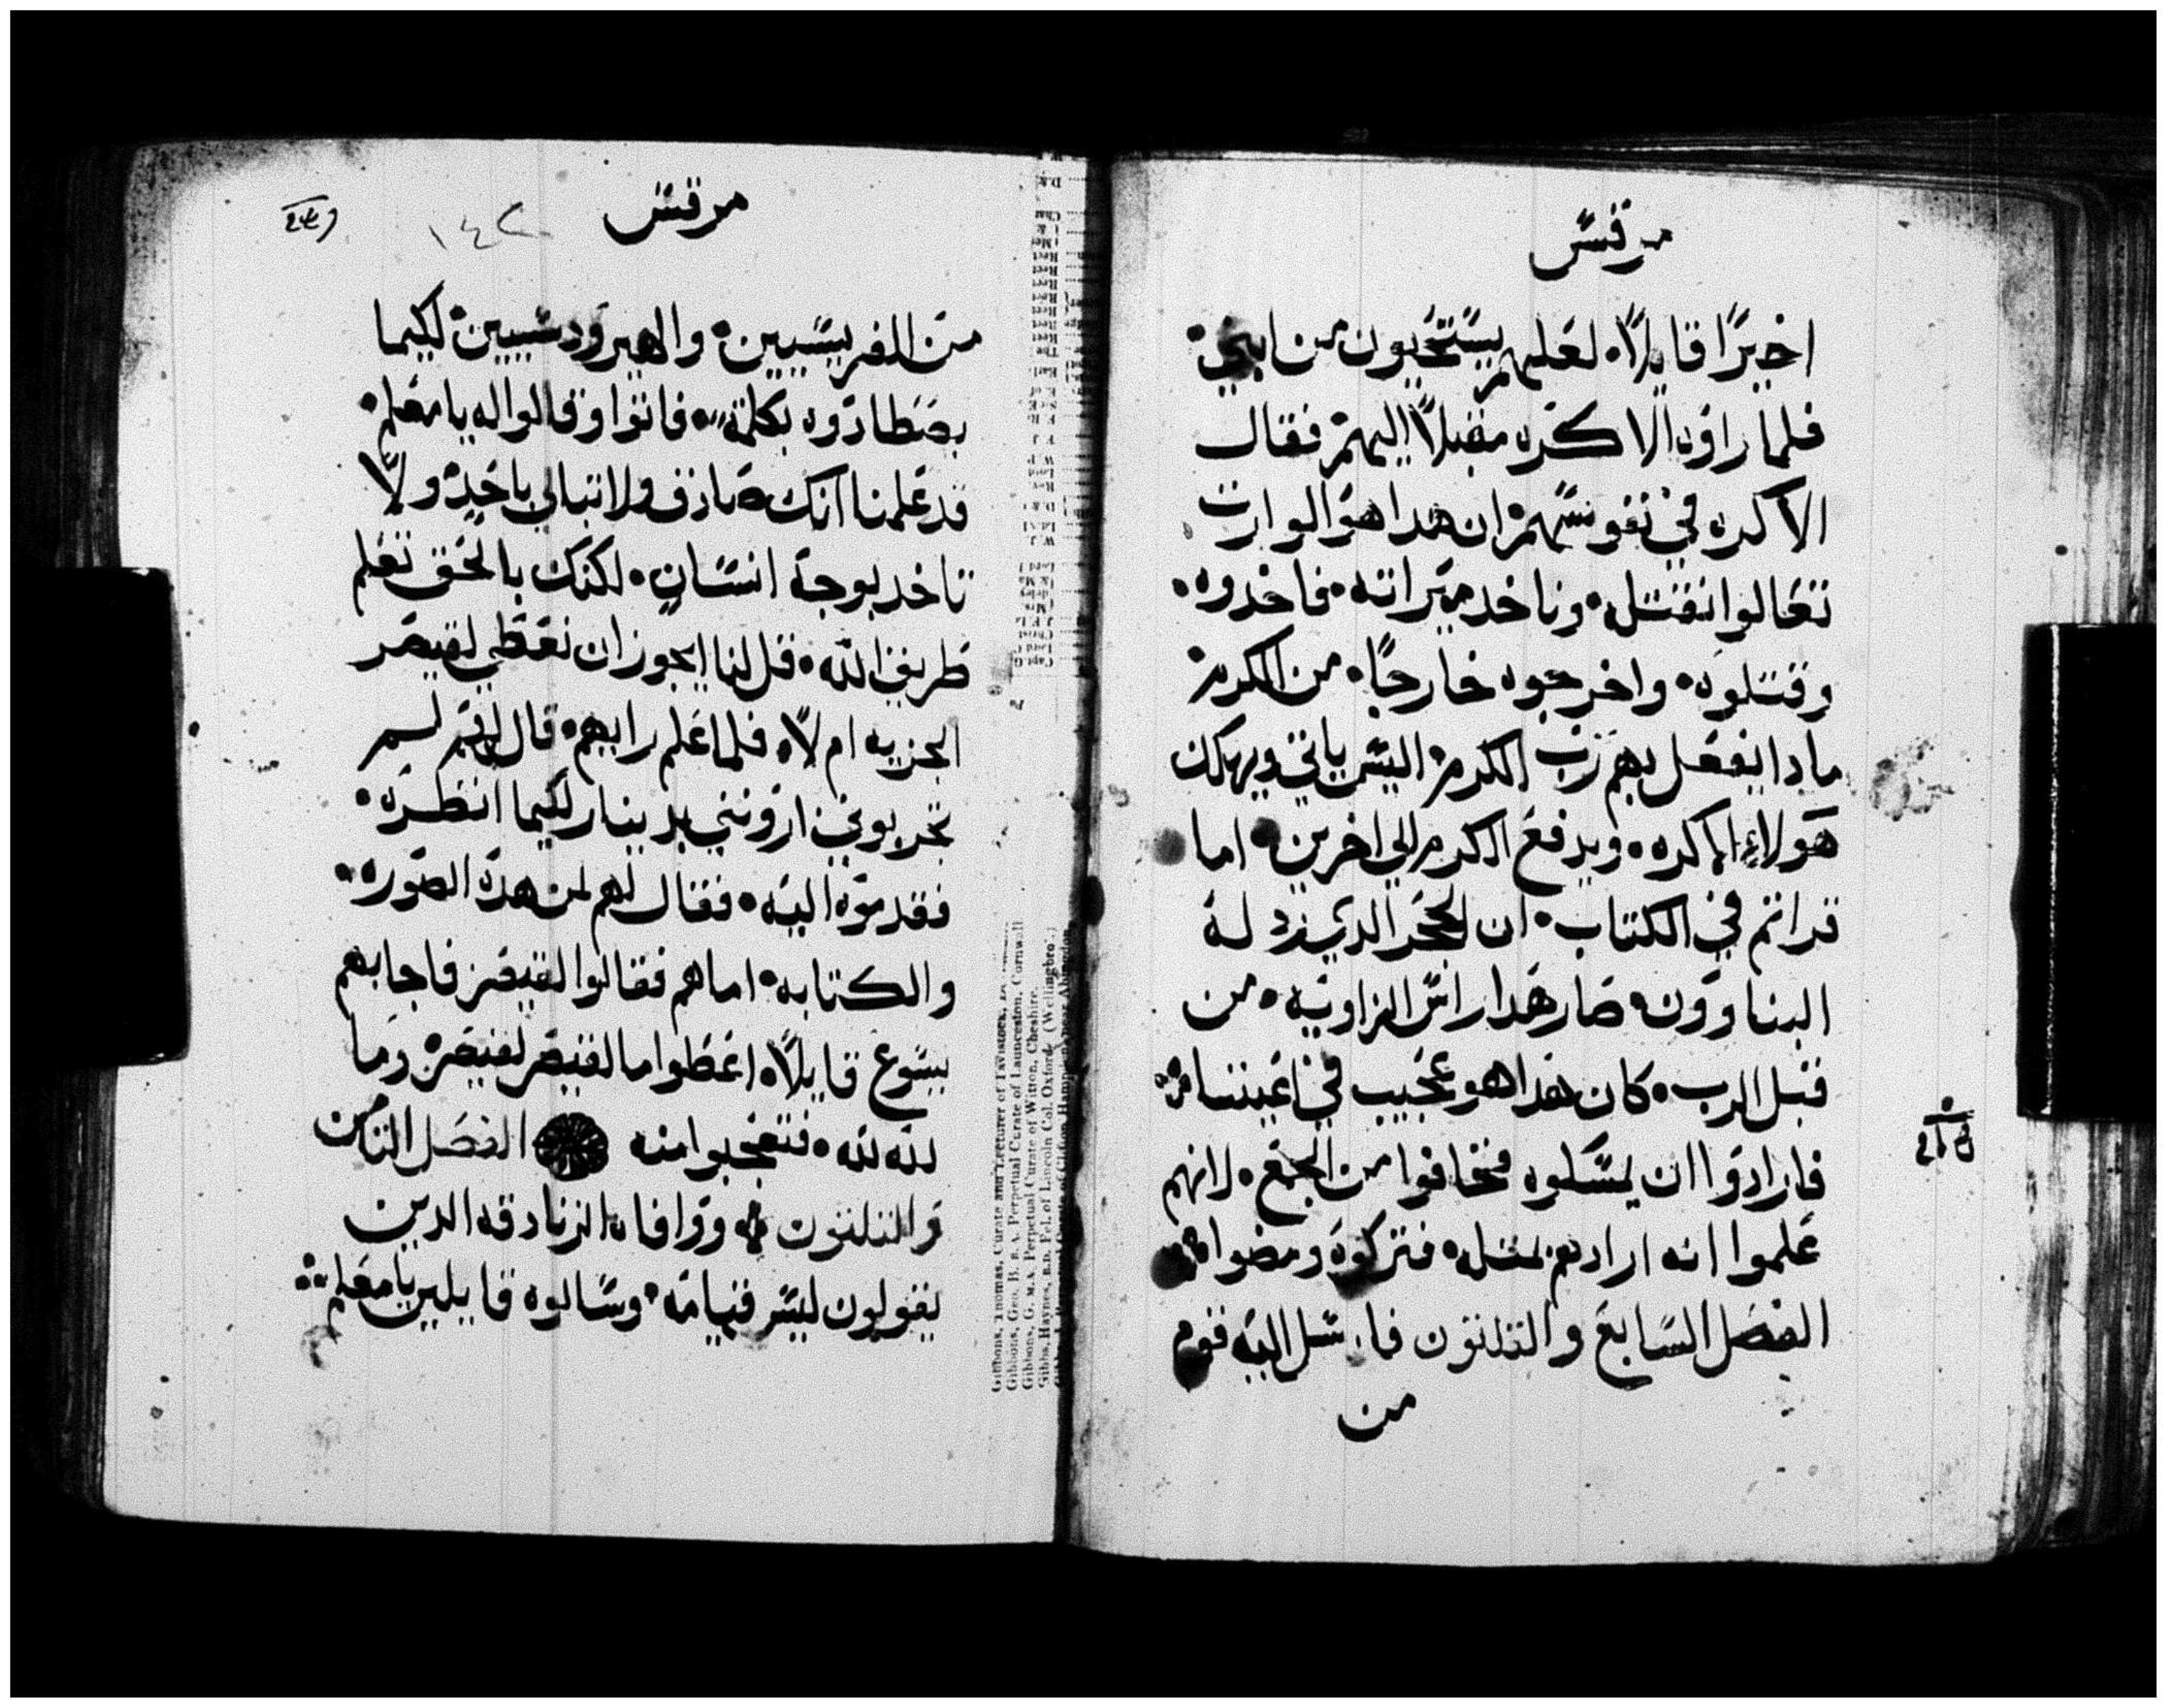 مرقس
اخيرًا قايلاً لعلهم يستحيون من ابني
فلما راوه الاكره مقبلاً اليهم فقال
الاكره في نفوسهم ان هدا هو الوارت
تعالوا نقتله وناخد ميراته فاخدوه
وقتلوه واخرجوه خارجًا من الكرم
مادا يفعل بهم رب الكرم اليس ياتي ويهلك
هولاء الاكره ويدفع الكرم الي اخرين اما
قراتم في الكتاب ان الحجر الدي رد له
البناوون صار هدا راس الزاويه من
قبل الرب كان هدا هو عجيب في اعيننا
فارادوا ان يمسكوه فخافوا من الجمع لانهم
علموا انه ارادهم بمتله فتركوه ومضوا
الفصل السابع والتلتون فارسل اليه قوم
من
مرقس
١٤٢
من الفريسيين والهيرودسيين لكيما
يصطادوه بكلمة فاتوا وقالوا له يا معلم
قد علمنا انك صادق ولا تبالي باحد ولا
تاخد بوجة انسان لكنك بالحق تعلم
طريق الله قل لنا ايجوز ان نعطي لقيصر
الجزيه ام لا فلما علم رايهم قال لهم لم
تجربوني اروني بدينار لكيما انظره
فقدموه اليه فقال لهم لمن هدة الصوره
والكتابه اما هم فقالوا لقيصر فاجابهم
يسوع قايلاً اعطوا ما لقيصر لقيصر وما
لله لله فتعجبوا منه الفصل التامن
والتلتون ووافاه الزنادقه الدين
يقولون ليس قيامة وسالوه قايلين يا معلم